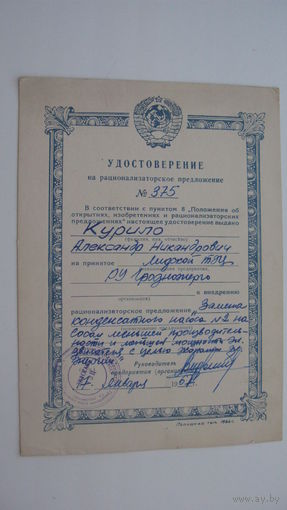 УДОСТОВЕРЕНИЕ
на рационализаторское предложение
№ 375
В соответствии с пунктом 8 „Положения об
открытиях, изобретениях и рационализаторских
предложениях" настоящее удостоверение выдано
Курило
(фамилия, имя, отчество)
Александр Никандрович
на принятое Лидской ТЭЦ
РУ Гродноэнерго
к внедрению
рационализаторское предложение Замена
конденсатного насоса №2 на
собой меньшей производитель-
ности и меньшей мощности эл.
двигателя с целью экономии эл.
энергии.
Руководитель
предприятия (организации)
января
ay.by